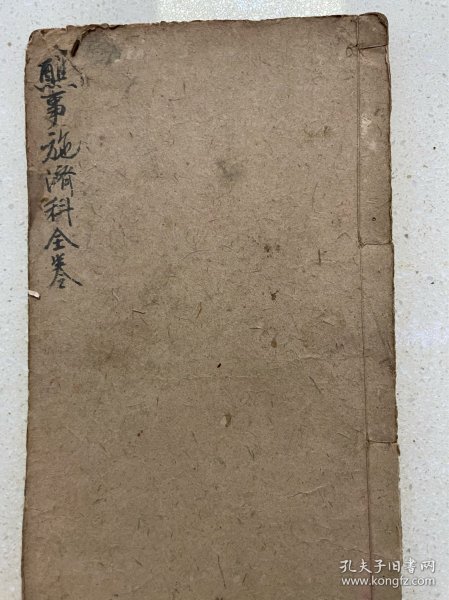 醮事施濟科全卷
孔夫子旧书网
www.kongfz.com